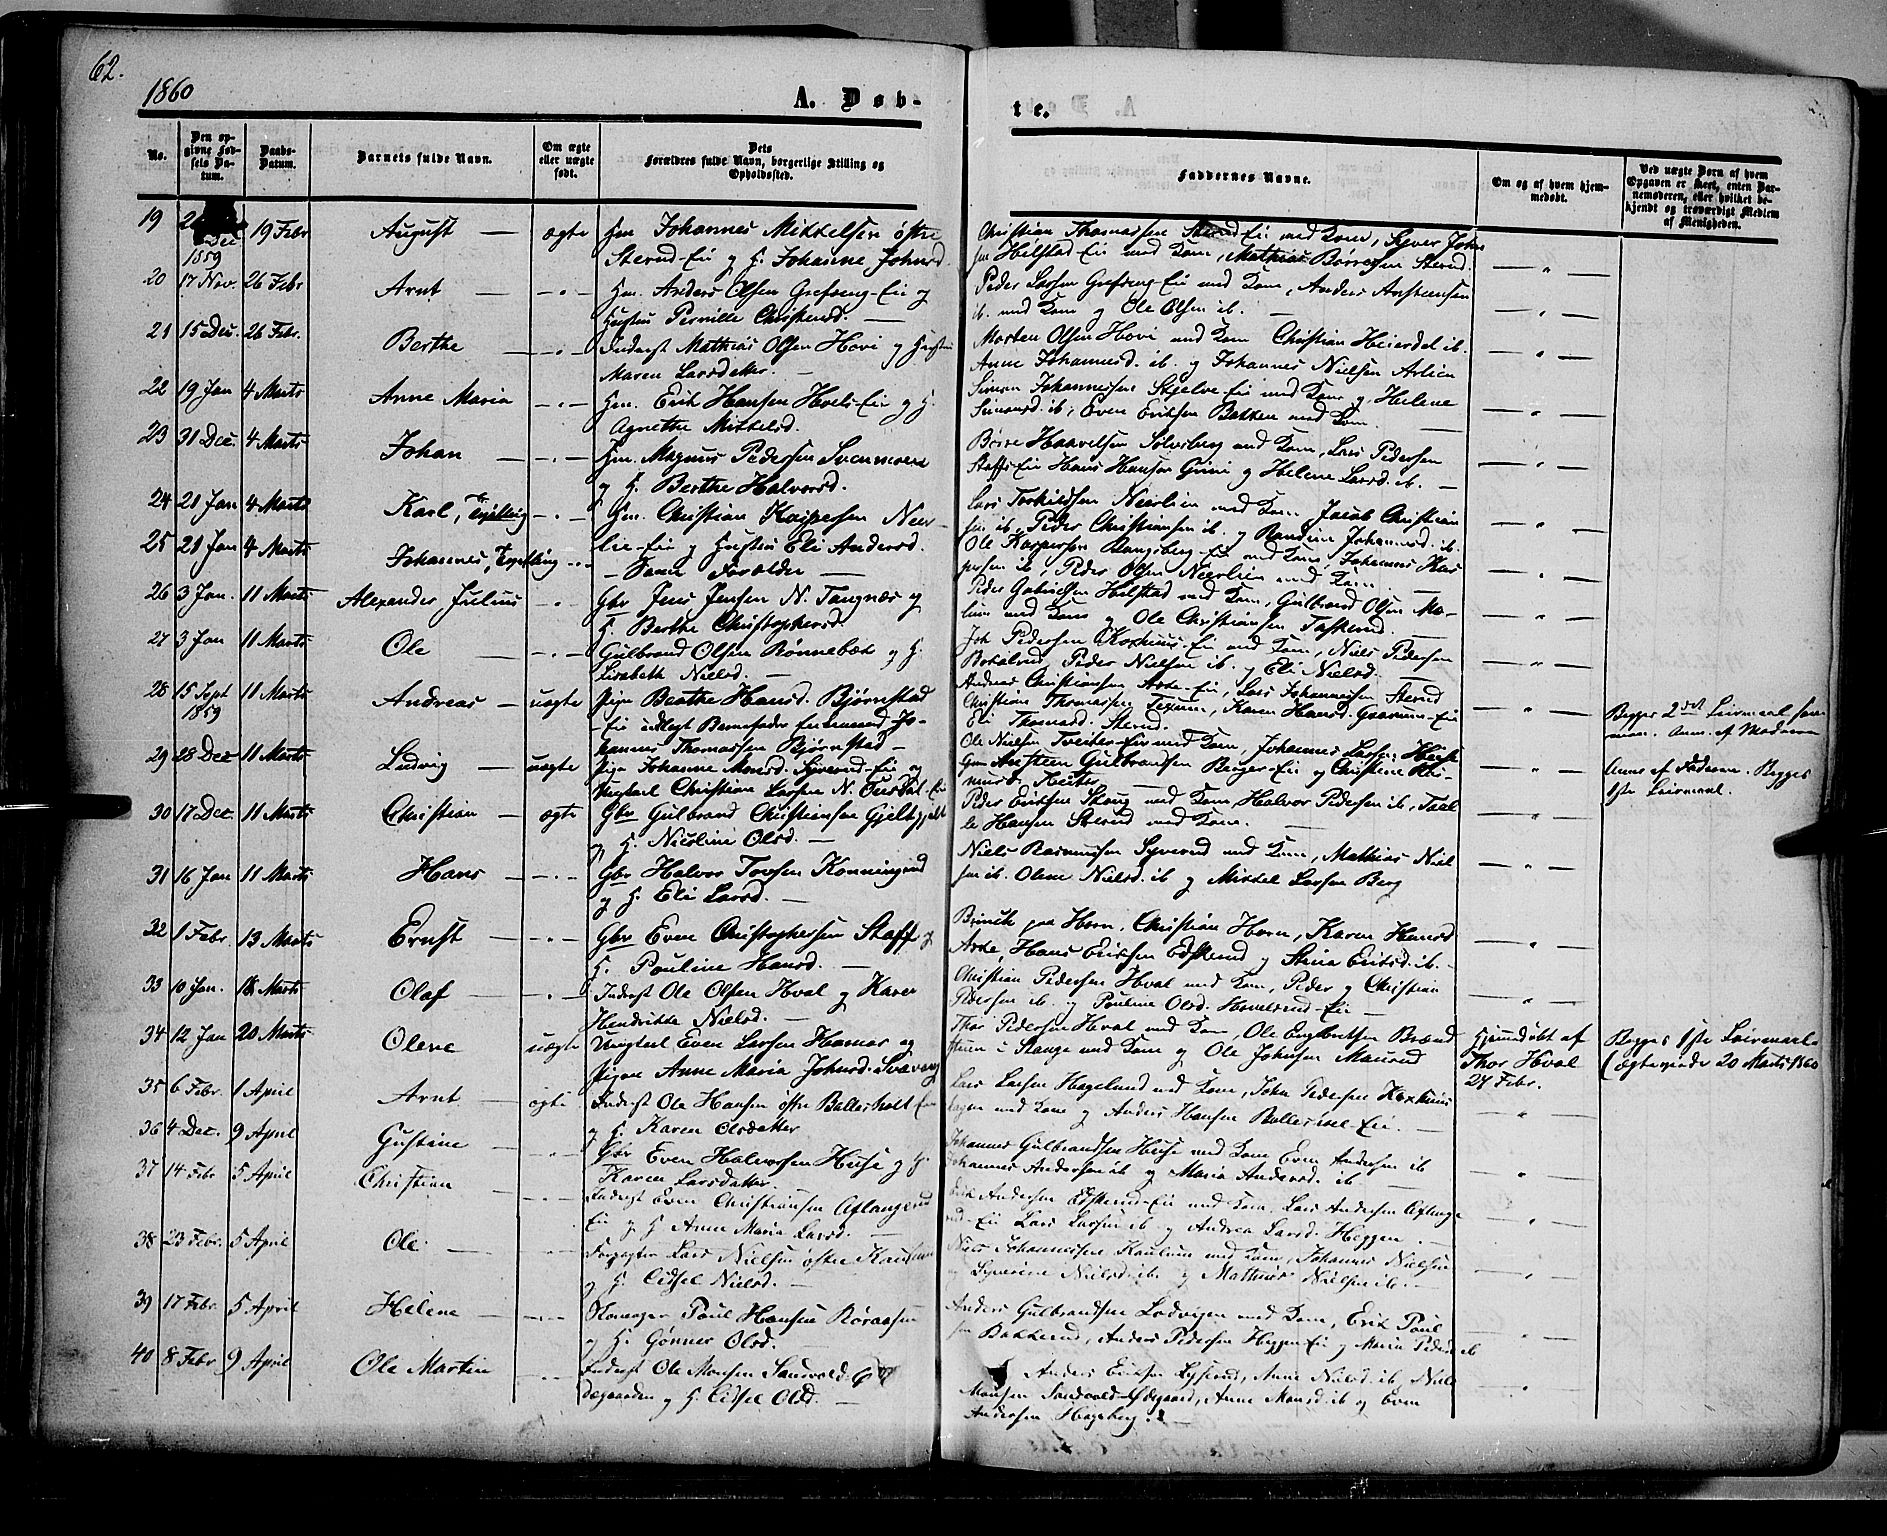 62.
1860
A. Døb-
te.
No.
Den op-
givne Fød-
sels Da-
tum.
Daabs-
Datum.
Barnets fulde Navn.
Om ægte
eller uægte
født.
Dets
Forældres fulde Navn, borgerlige Stilling og
Opholdssted.
Faddernes Navne.
Om og af hvem hjem-
medøbt.
Ved uægte Børn af hvem
Opgaven er skeet, enten Bar-
nemoderen, eller hvilket be-
kjendt og troværdigt Medlem
af Menigheden.
19 Dec 1859 19 Febr August — ægte Hm Johannes Mikkelsen østre
Sterud-Eie og H. Johanne Johnsd.
Christian Thomassen Sterud-Eie med Kone, Syver Johns
sen Hilstad-Eie med Kone, Mathias Børresen Sterud.
20 17 Nov. 26 Febr Arnt — Hm. Anders Olsen Grefseng-Eie og
Hustru Pernille Christensd. —
Peder Larsen Grefseng-Eie med Kone, Anders
ib. med Kone og Ole Olsen ib. —
21 15 Dec. 26 Febr. Berthe — Inderst Mathias Olsen Hovi og Hustru
Maren Larsdatter. —
Morten Olsen Hovi med Kone Christian Heierdal ib.
Anne Johannesd. ib. og Johannes Nielsen
22 19 Jan 4 Marts Anne Maria — Hm. Erik Hansen Hvels-Eie og H.
Agnethe Mikkelsd.
Simen Johannessen Skjelve-Eie med Kone og Helene
Simensd. ib, Even Eriksen Bakken med Kone.
23 31 Dec. 4 Marts Johan — Hm. Magnus Pedersen Svenmoen
og H. Berthe Halvorsd.
Børre Haavelsen Sølvsberg med Kone, Lars Pedersen
Staffs-Eie Hans Hansen Grini og Helene Larsd. ib. —
24 21 Jan 4 Marts Karl, Tvilling — Hm. Christian Kaspersen Neer-
lie-Eie og Hustru Eli Andersd.
Lars Torkildsen Neerlien med Kone Jacob Christian
sen ib. Peder Christiansen ib. og Randine Johannesd. ib.
25 21 Jan 4 Marts Johannes, Tvilling — Samme Forældre —
Ole Kaspersen Rangsberg-Eie med Kone, Johannes Kas
persen ib, Peder Olsen Neerlien med Kone
26 3 Jan. 11 Marts Alexander Julius — Gbr Jens Jensen N. Tangnæs og
H. Berthe Christophersd.
Peder Gabrielsen Hilstad med Kone, Gulbrand Olsen Mæ-
lum med Kone og Ole Christiansen Taskerud. —
27 3 Jan 11 Marts Ole — Gulbrand Olsen Rønnebæk og H.
Lisabeth Nielsd. —
Joh Pedersen Korshuus-Eie med Kone, Niels Pedersen
Botolrud, Peder Nielsen ib. og Eli Nielsd. —
28 15 Sept 1859 11 Marts Andreas — uægte Pige Berthe Hansd. Bjørnstad
-Eie udlagt Barnefader Enkemand Jo-
hannes Thomassen Bjørnstad —
Anders Christiansen Aske-Eie, Lars Johannesen Sterud
Christian Thomassen Texum, Karen Hansd. Gaarum-Eie
Eli Thomasd. Sterud.
Begges 2det Leiermaal sam
men. Anm. af Moderen
29 28 Dec 11 Marts Ludvig — uægte Pige Johanne Monsd. Syverud-Eie og
Ungkarl Christian Larsen N. Ousdal-Eie
Ole Nielsen Tveiter-Eie med Kone, Johannes Larsen
Gm Austeen Gulbrandsen Berger-Eie og Christine
Anm af Faderen. Begges
1ste Leiermaal.
30 17 Dec. 11 Marts Christian — ægte Gbr Gulbrand Christiansen
og H. Nicoline Olsd. —
Peder Eriksen Skoug med Kone Halvor Pedersen ib, Paal
Hansen Sterud med Kone.
31 16 Jan 11 Marts Hans — Gbr Halvor Torsen Konningrud
og H. Eli Larsd. —
Niels Rasmussen Syverud med Kone, Mathias Niel
sen ib. Olene Nielsd. ib og Mikkel Larsen Berg
32 1 Febr. 13 Marts Ernst — Gbr Even Christophersen Staff og
H. Pauline Hansd. —
Brinck paa Horn, Christian Horn, Karen Hansd
Aske, Hans Erichsen Edskerud og Stina Eriksd. ib. —
33 10 Jan. 18 Marts Olaf — Inderst Ole Olsen Hval og Karen
Hendrikke Nielsd. —
Christian Pedersen Hval med Kone, Peder og Christian
Pedersen ib. og Pauline Olsd. Haverud-Eie —
34 12 Jan 20 Marts Olene uægte Ungkarl Even Larsen Hamar og
Pigen Anne Maria Johnsd. Svæveng
Thor Pedersen Hval med Kone, Ole Engbretsen Brænd
stuen i Stange med Kone og Ole Johnsen Maurud
Hjemmedøbt af
Thor Hval
27 Febr.
Begges 1ste Leiermaal
(ægteviede 20 Marts 1860
35 6 Febr. 1 April Arnt — ægte Inderst Ole Hansen østre Balleshol-Eie
og H. Karen Olsdatter
Lars Larsen Hageland med Kone, John Pedersen Korshuus
hagen med Kone og Anders Hansen Balleshol-Eie. —
36 4 Dec. 9 April Gustine — Gbr Even Halvorsen Huse og H.
Karen Larsdatter.
Johannes Gulbrandsen Huse med Kone Even Andersen ib
Johannes Andersen ib og Maria Andersd. ib —
37 14 Febr 5 April Christian — Inderst Even Christiansen Aslangrud
Eie og H Anne Maria Larsd. —
Erik Andersen Edskerud-Eie med Kone, Lars Andersen Aslang
rud-Eie Lars Larsen ib og Andrea Larsd. Heggen. —
38 23 Febr. 5 April Ole — Forpagter Lars Nielsen østre Kaulum
og H. Cidsel Nielsd. —
Niels Johannessen Kaulum med Kone, Johannes Nielsen
og Syverine Nielsd. ib. og Mathias Nielsen ib. —
39 17 Febr. 5 April Helene — Skomager Paul Hansen Roraasen
og H. Gønner Olsd. —
Anders Gulbrandsen Lodvigen med Kone, Erik Paul
sen Bakkerud, Anders Pedersen Heggen-Eie og Maria Pedersd ib
40 8 Febr 9 April Ole Martin — Inderst Ole Monsen Sandvold-
Ødegaarden og H. Cidsel Olsd. —
Anders Eriksen Lyserud, Anne Nielsd. ib, Niels
Monsen Sandvold-Ødegaard, Anne Monsd. ib og Even
Andersen Hagsberg. —